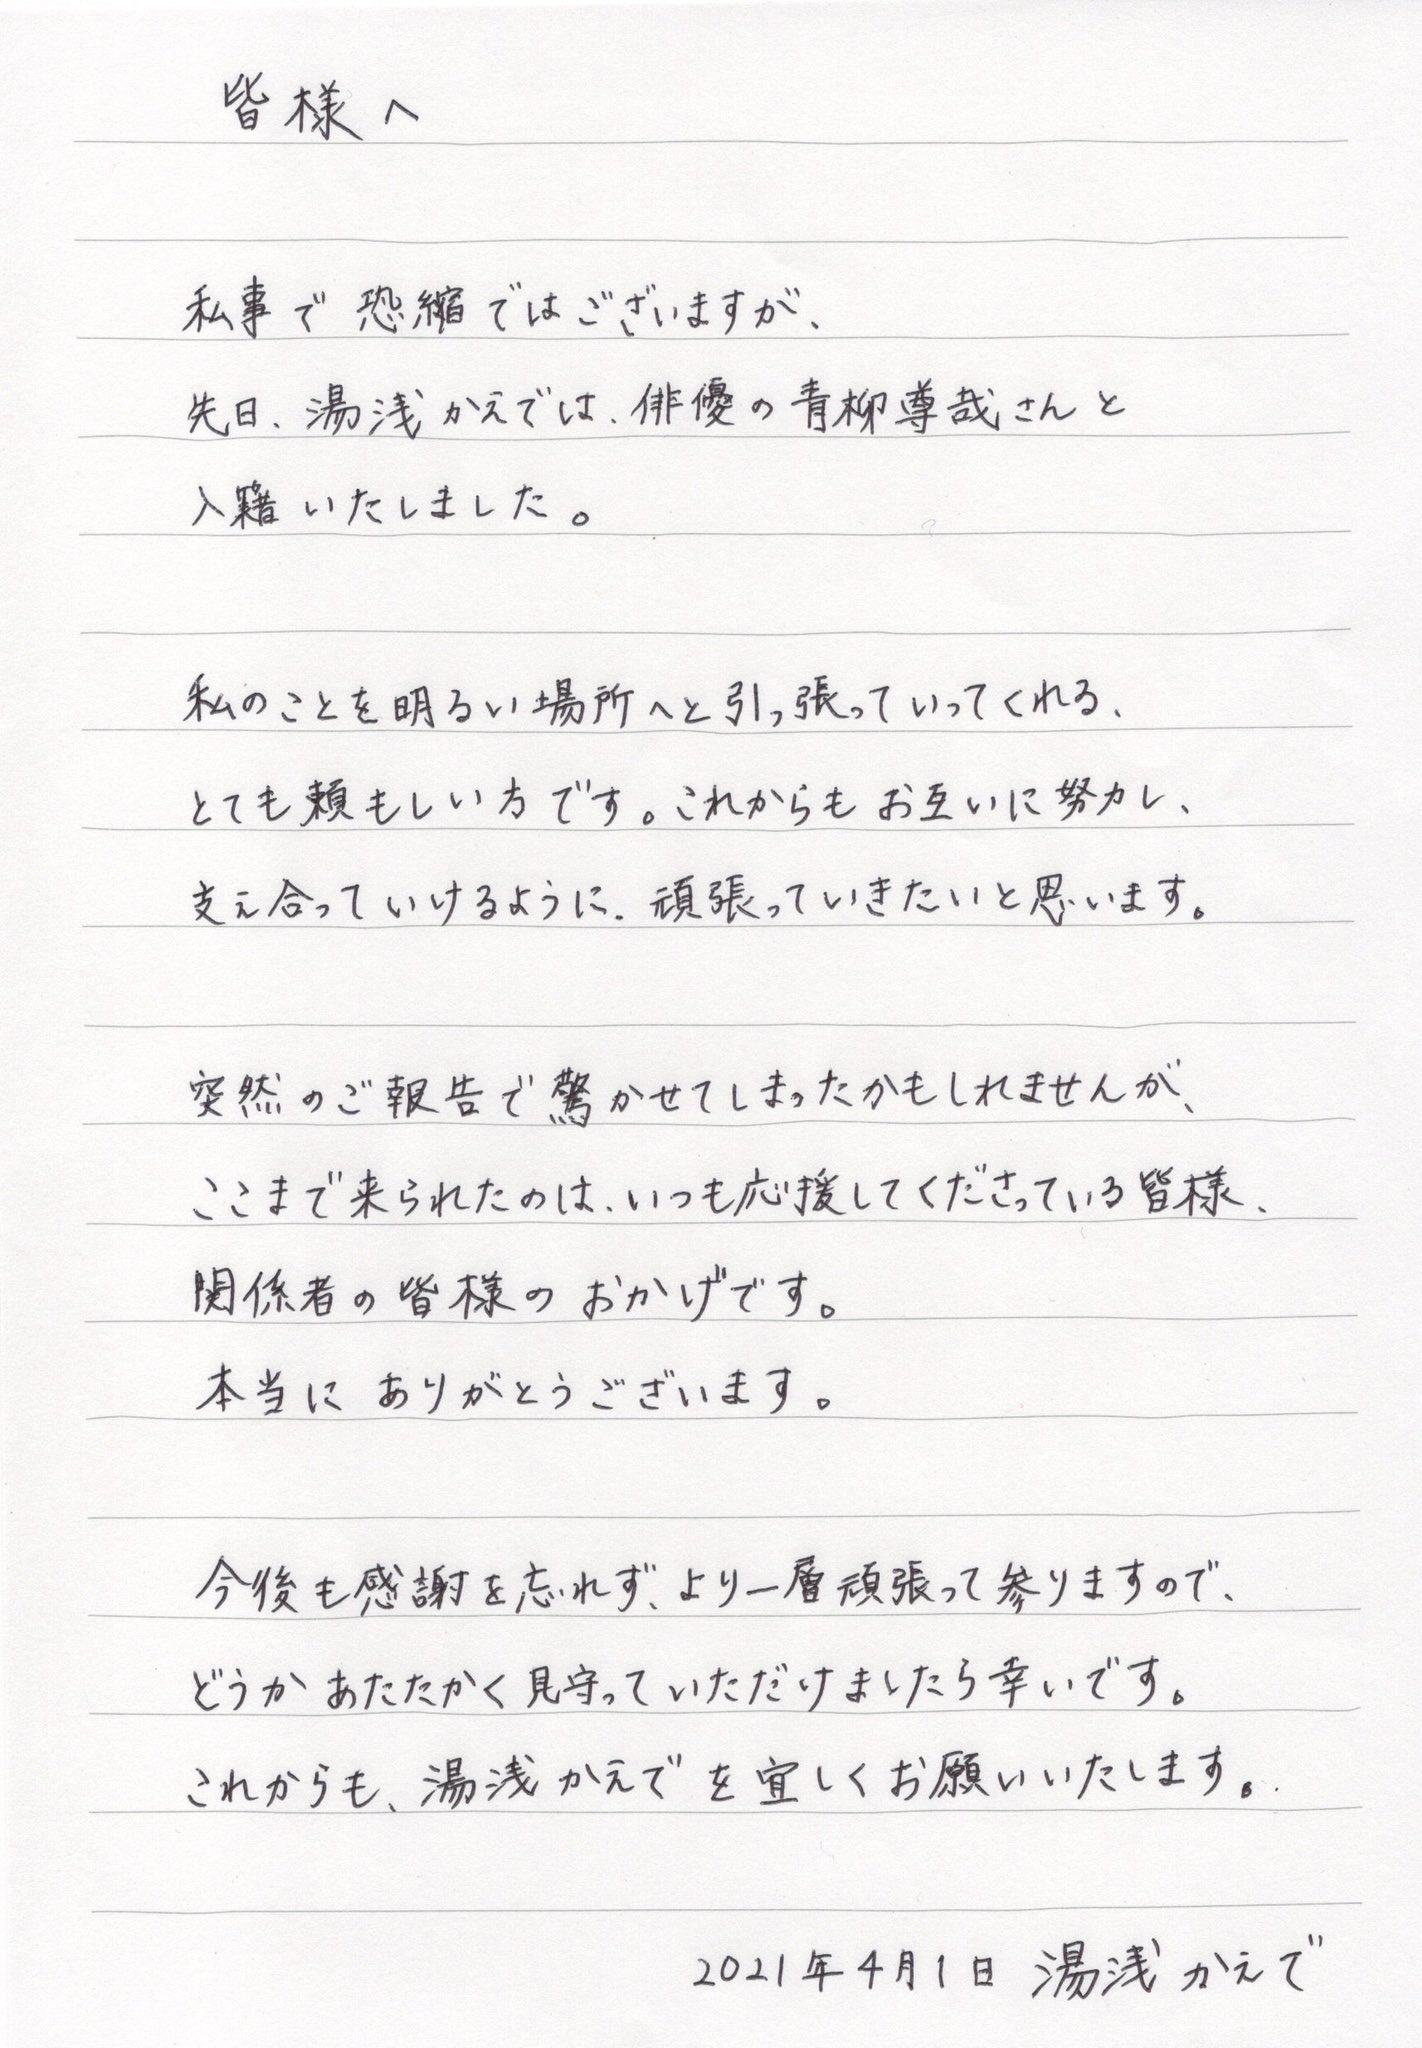 皆様へ
私事で恐縮ではございますが、
先日、湯浅かえでは、俳優の青柳尊哉さんと
入籍いたしました。
私のことを明るい場所へと引っ張っていってくれる、
とても頼もしい方です。これからもお互いに努力し、
支え合っていけるように、頑張っていきたいと思います。
突然のご報告で驚かせてしまったかもしれませんが、
ここまで来られたのは、いつも応援してくださっている皆様、
関係者の皆様のおかげです。
本当にありがとうございます。
今後も感謝を忘れず、より一層頑張って参りますので、
どうかあたたかく見守っていただけましたら幸いです。
これからも、湯浅かえでを宜しくお願いいたします。
2021年4月1日 湯浅かえで